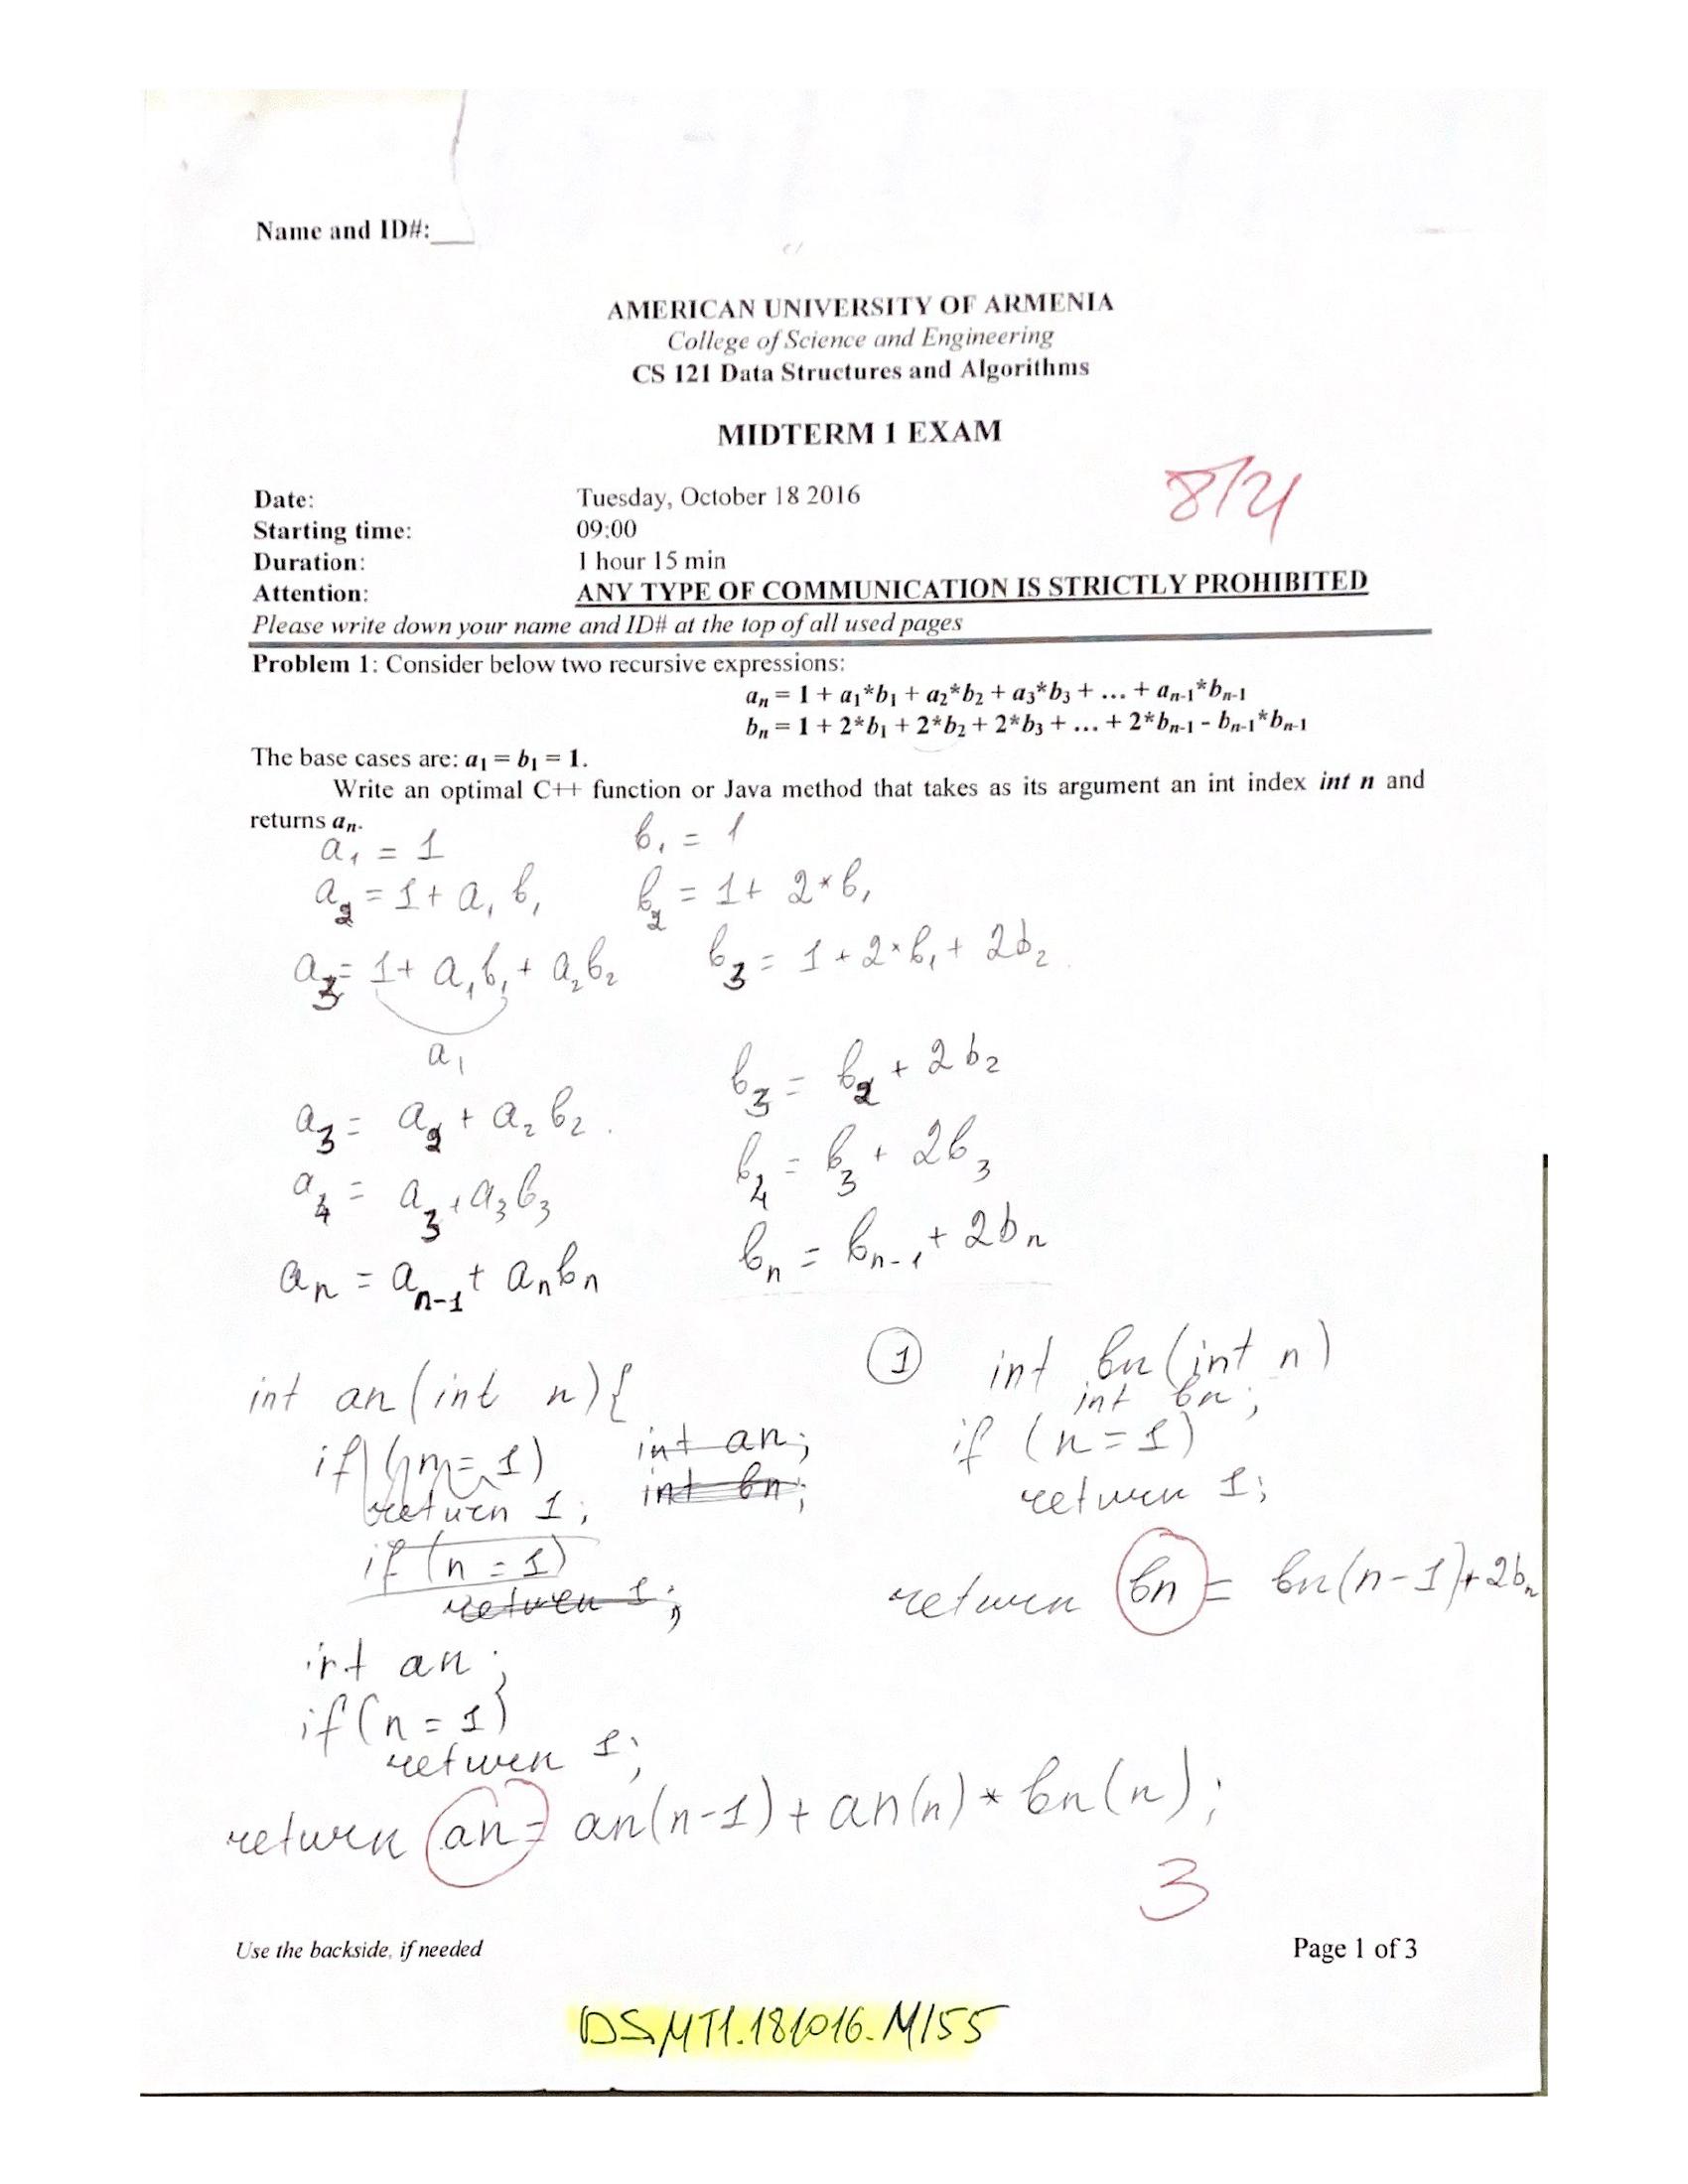 Name and ID#:
AMERICAN UNIVERSITY OF ARMENIA
College of Science and Engineering
CS 121 Data Structures and Algorithms
MIDTERM 1 EXAM
Date: Tuesday, October 18 2016
Starting time: 09:00
Duration: 1 hour 15 min
Attention: ANY TYPE OF COMMUNICATION IS STRICTLY PROHIBITED
Please write down your name and ID# at the top of all used pages
Problem 1: Consider below two recursive expressions:
aₙ = 1 + a₁*b₁ + a₂*b₂ + a₃*b₃ + ... + aₙ₋₁*bₙ₋₁
bₙ = 1 + 2*b₁ + 2*b₂ + 2*b₃ + ... + 2*bₙ₋₁ - bₙ₋₁*bₙ₋₁
The base cases are: a₁ = b₁ = 1.
Write an optimal C++ function or Java method that takes as its argument an int index int n and
returns aₙ.
a₁ = 1 b₁ = 1
a₂ = 1 + a₁ b₁ b₂ = 1 + 2*b₁
a₃ = 1 + a₁b₁ + a₂b₂ b₃ = 1 + 2*b₁ + 2b₂
a₁
b₃ = b₂ + 2b₂
a₃ = a₂ + a₂b₂.
b₄ = b₃ + 2b₃
a₄ = a₃ + a₃b₃
bₙ = bₙ₋₁ + 2bₙ
aₙ = aₙ₋₁ + aₙbₙ
1 int bn(int n)
int an(int n){ int bn;
if (n = 1) int an; if (n=1)
return 1; int bn; return 1;
if (n = 1)
return 1; return bn = bn(n-1)+2bₙ
int an;
if(n = 1)
return 1;
return an = an(n-1) + an(n) * bn(n);
3
Use the backside, if needed Page 1 of 3
DS.MT1.181016.M155